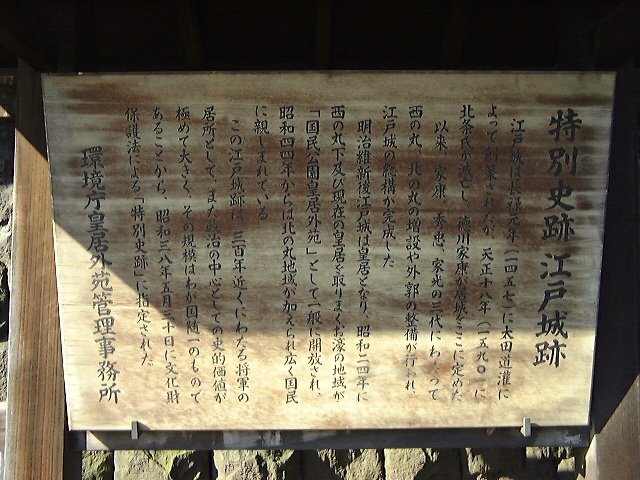 特別史跡 江戸城跡
江戸城は長禄元年（一四五七）に太田道灌に
よって創築されたが、天正十八年（一五九〇）に
北条氏が滅亡し、徳川家康が居城をここに定めた
以来、家康、秀忠、家光の三代にわたって
西の丸、北の丸の増設や外郭の整備が行われ、
江戸城の総構が完成した
明治維新後江戸城は皇居となり、昭和二四年に
西の丸下及び現在の皇居を取りまくお濠の地域が
「国民公園皇居外苑」として一般に開放され、
昭和四四年からは北の丸地域が加えられ広く国民
に親しまれている
この江戸城跡は、三百年近くにわたる将軍の
居所として、また政治の中心としての史的価値が
極めて大きく、その規模はわが国随一のもので
あることから、昭和三八年五月三十日に文化財
保護法による「特別史跡」に指定された
環境庁皇居外苑管理事務所